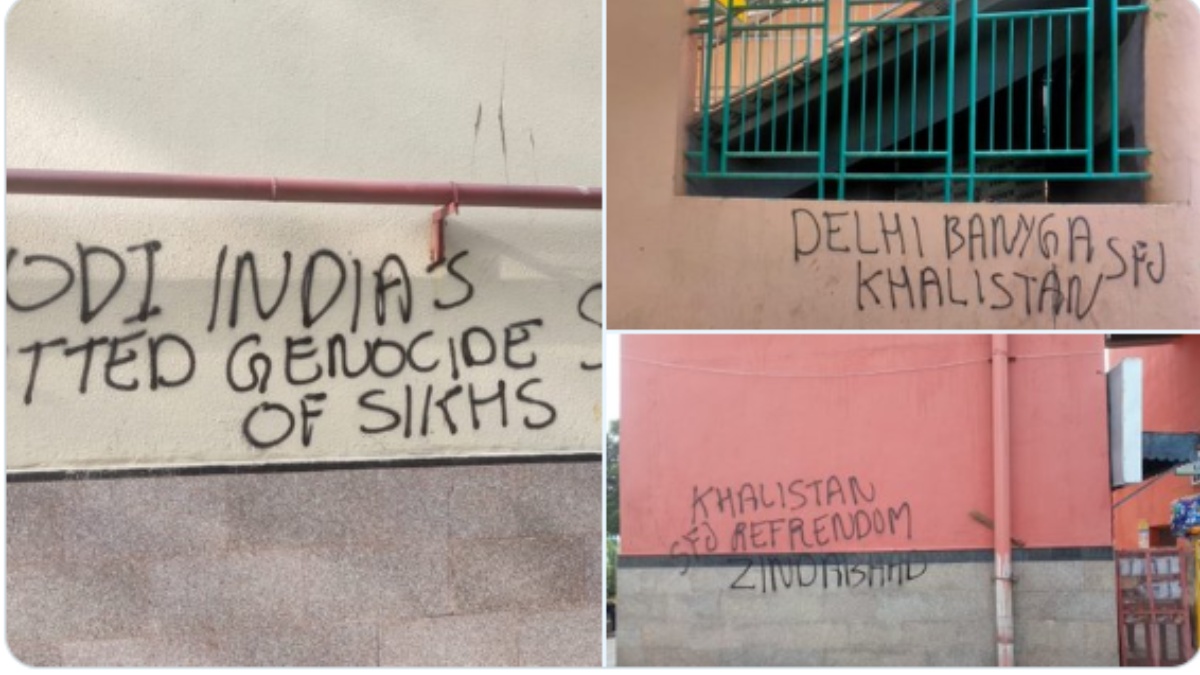 ODI INDIA'S
TTED GENOCIDE S
OF SIKHS
DELHI BANYGA
KHALISTAN SFJ
KHALISTAN
SFJ REFRENDOM
ZINDABHAD